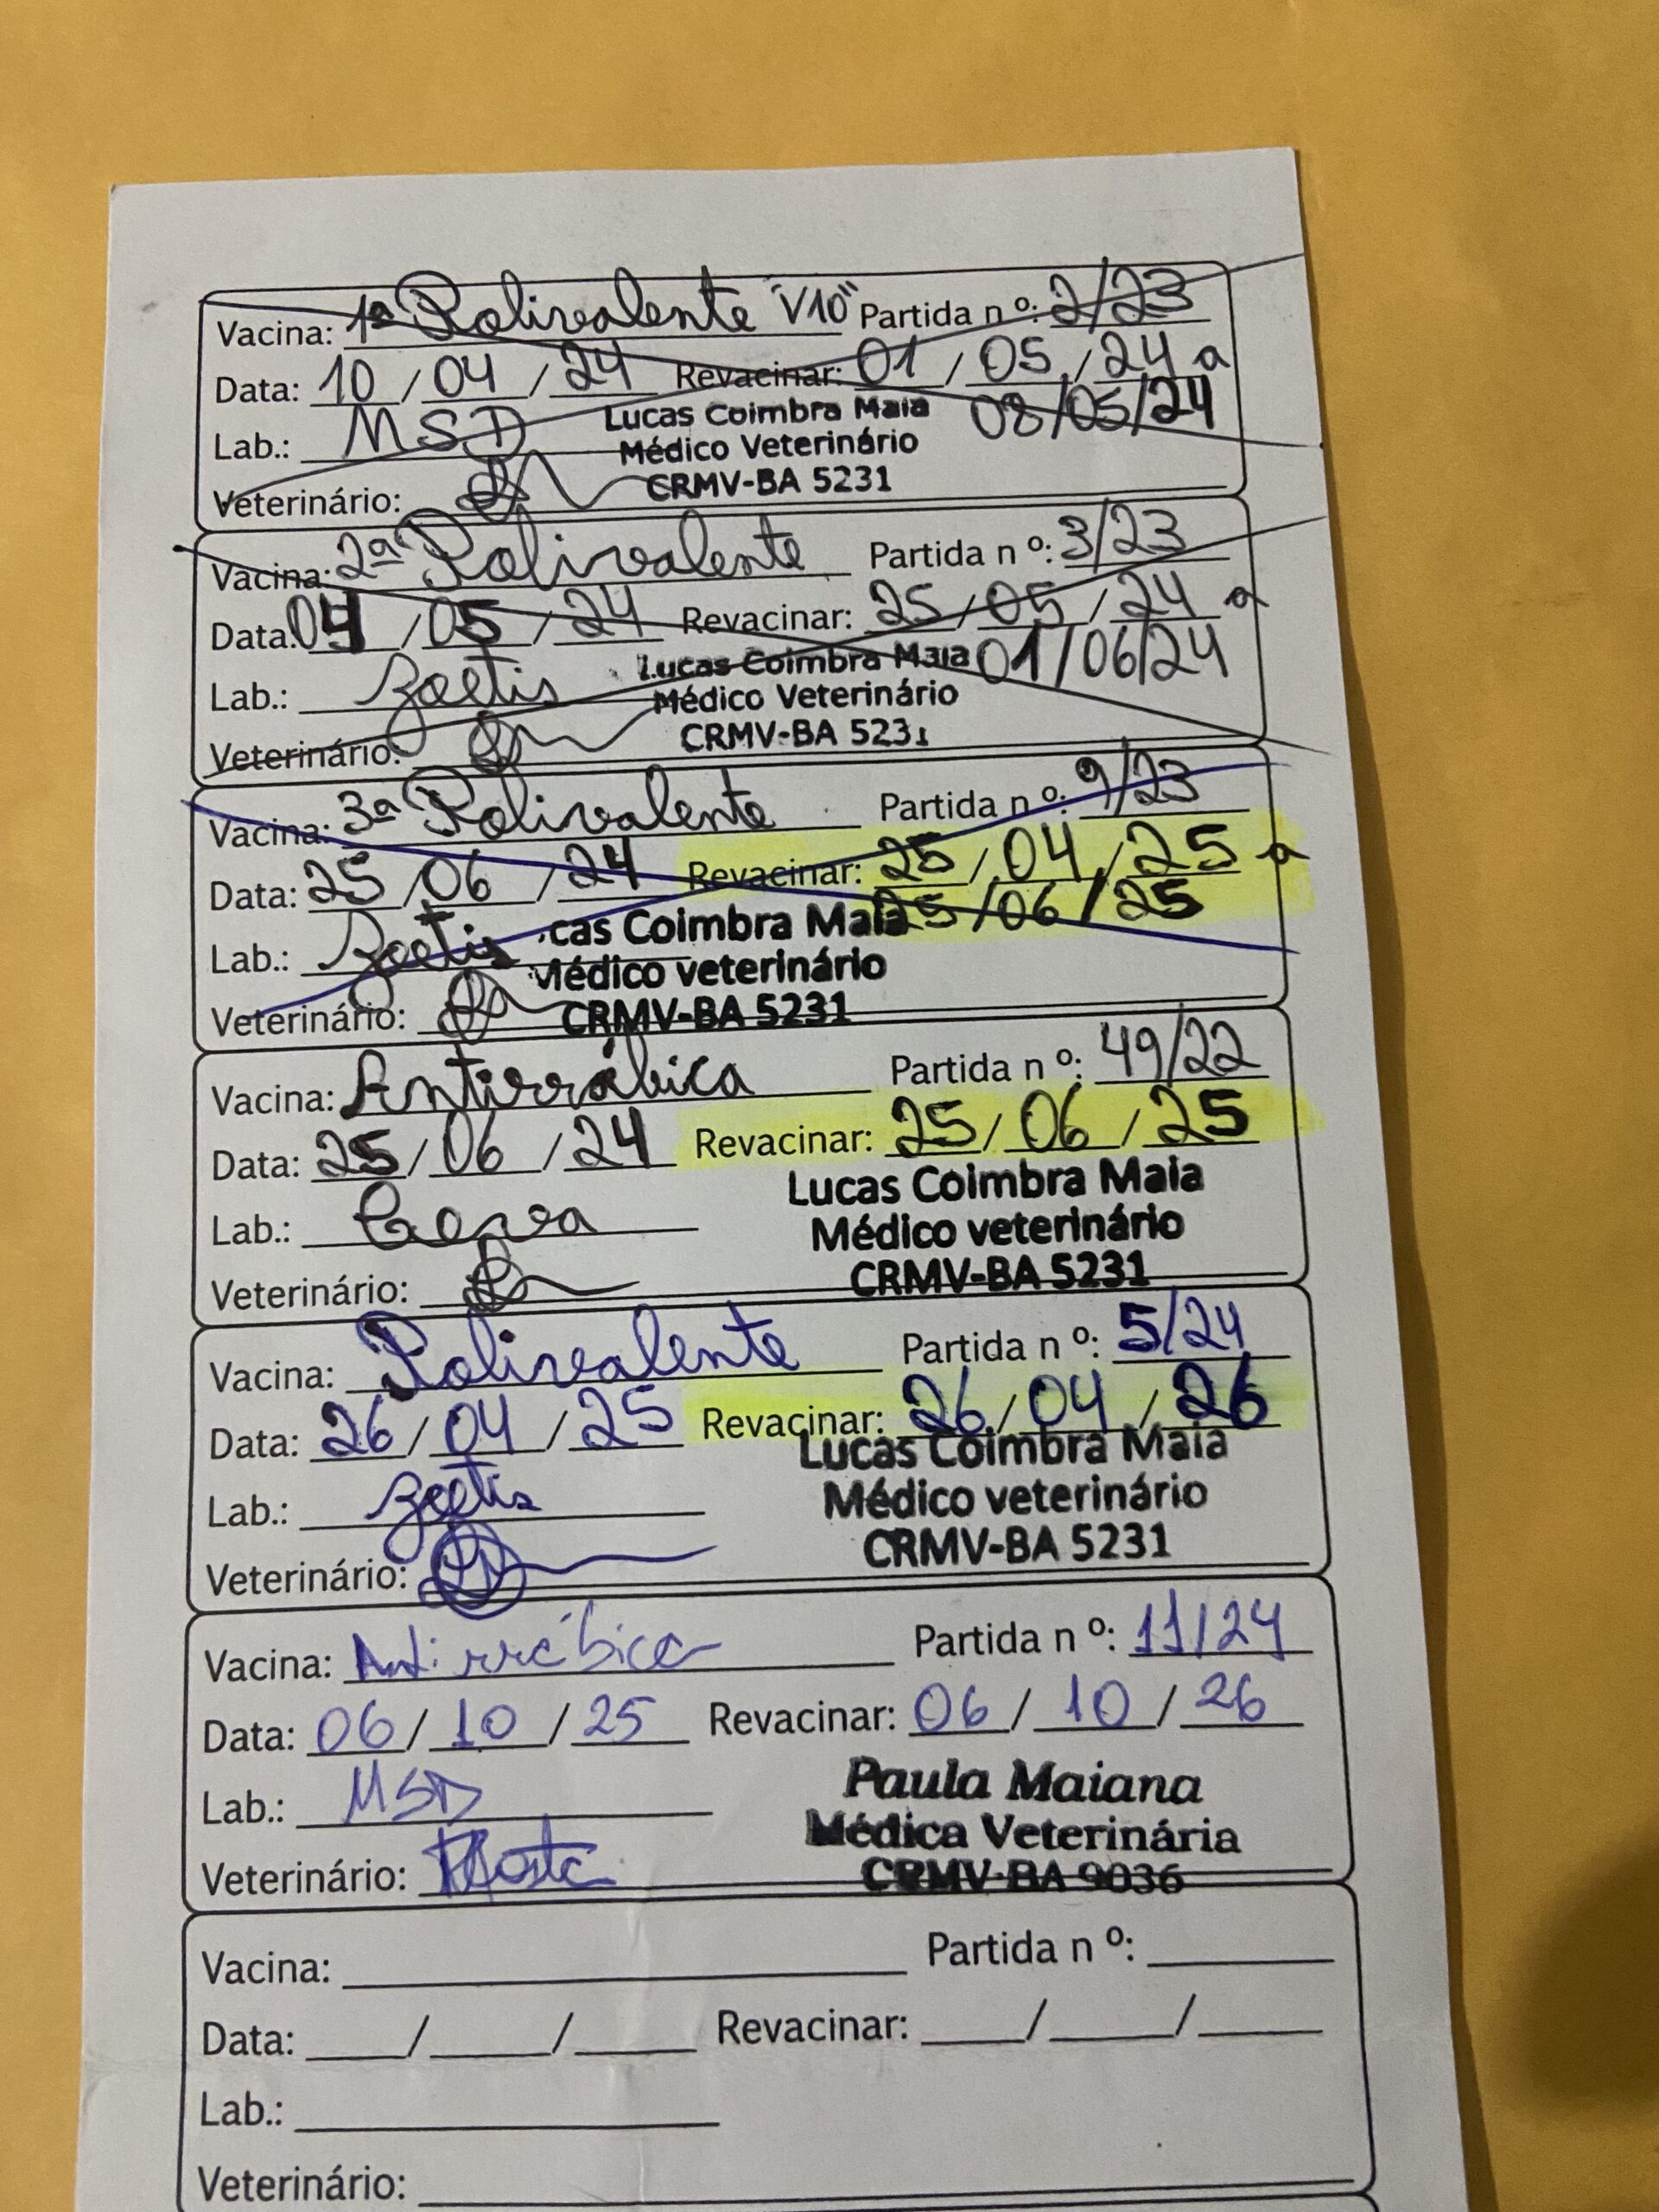 Vacina: 1ª Polivalente "V10" Partida n º: 2/23
Data: 10/04/24 Revacinar: 01/05/24 a
08/05/24
Lab.: MSD
Lucas Coimbra Maia
Médico Veterinário
CRMV-BA 5231
Veterinário:
Vacina: 2ª Polivalente Partida n º: 3/23
Data: 04/05/24 Revacinar: 25/05/24 a
01/06/24
Lab.: Zoetis
Lucas Coimbra Maia
Médico Veterinário
CRMV-BA 5231
Veterinário:
Vacina: 3ª Polivalente Partida n º: 9/23
Data: 25/06/24 Revacinar: 25/04/25 a
25/06/25
Lab.: Zoetis
cas Coimbra Maia
Médico veterinário
CRMV-BA 5231
Veterinário:
Vacina: Antirrábica Partida n º: 49/22
Data: 25/06/24 Revacinar: 25/06/25
Lab.: Ceva
Lucas Coimbra Maia
Médico veterinário
CRMV-BA 5231
Veterinário:
Vacina: Polivalente Partida n º: 5/24
Data: 26/04/25 Revacinar: 26/04/26
Lab.: Zoetis
Lucas Coimbra Maia
Médico veterinário
CRMV-BA 5231
Veterinário:
Vacina: Antirrábica Partida n º: 11/24
Data: 06/10/25 Revacinar: 06/10/26
Lab.: MSD
Paula Maiana
Médica Veterinária
CRMV-BA 9036
Veterinário:
Vacina: Partida n º:
Data: / / Revacinar: / /
Lab.:
Veterinário: